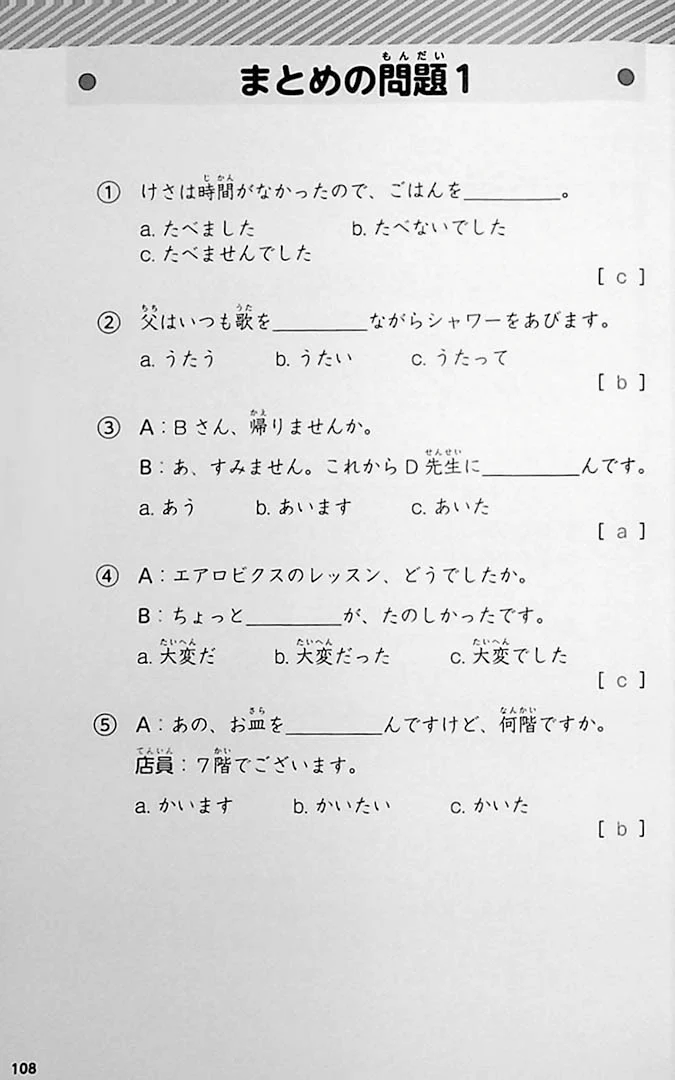 まとめの問題1
もんだい
① けさは時間がなかったので、ごはんを_________。
じかん
a. たべました b. たべないでした
c. たべませんでした
[ c ]
② 父はいつも歌を_________ながらシャワーをあびます。
ちち うた
a. うたう b. うたい c. うたって
[ b ]
③ A：Bさん、帰りませんか。
かえ
B：あ、すみません。これからD先生に_________んです。
せんせい
a. あう b. あいます c. あいた
[ a ]
④ A：エアロビクスのレッスン、どうでしたか。
B：ちょっと_________が、たのしかったです。
a. 大変だ b. 大変だった c. 大変でした
たいへん たいへん たいへん
[ c ]
⑤ A：あの、お皿を_________んですけど、何階ですか。
さら なんかい
店員：7階でございます。
てんいん かい
a. かいます b. かいたい c. かいた
[ b ]
108